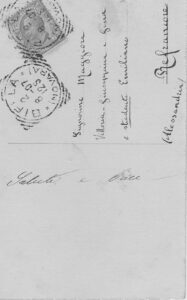 BIELLA
Signorine Maggiora
Vittoria - Giuseppina e Gina
e studente Emiliano
Refrancore
(Alessandria)
Saluti e